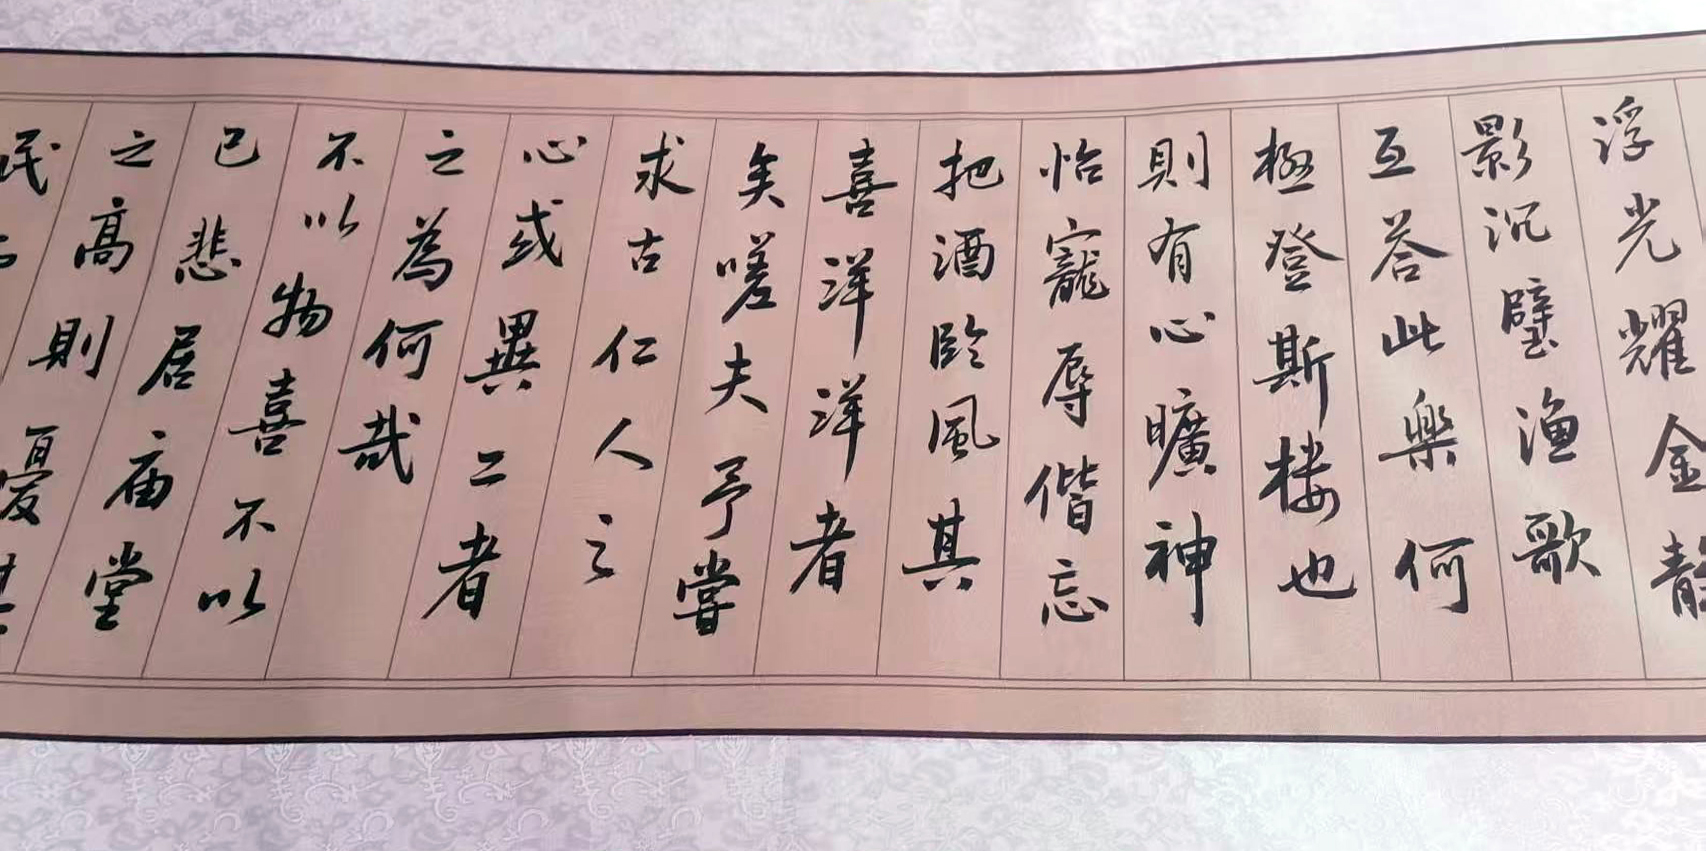 浮光耀金静
影沉璧漁歌
互荅此樂何
極登斯楼也
則有心曠神
怡寵辱偕忘
把酒臨風其
喜洋洋者
矣嗟夫予嘗
求古仁人之
心或異二者
之為何哉
不以物喜不以
己悲居庙堂
之高則憂其
民